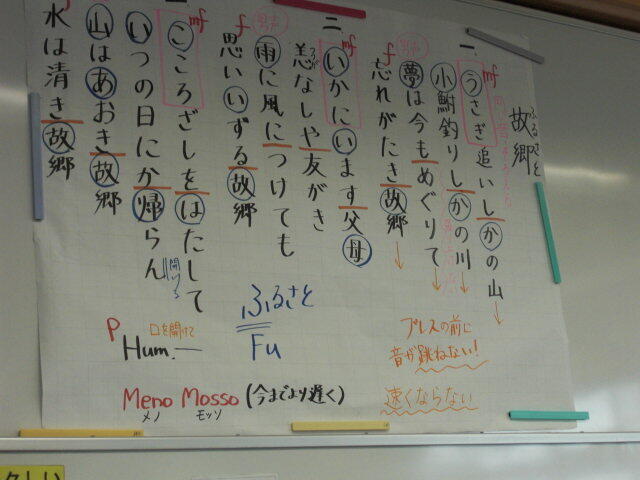 故郷
ふるさと
一
mf
うさぎ追いしかの山
小鮒釣りしかの川
夢は今もめぐりて
f
忘れがたき故郷
二
mf
いかにいます父母
恙なしや友がき
つつが
雨に風につけても
f
思いいずる故郷
mf
こころざしをはたして
いつの日にか帰らん
山はあおき故郷
f
水は清き故郷
開ける
ふるさと
Fu
P
口を開けて
Hum.
Meno Mosso (今までより遅く)
メノ モッソ
ブレスの前に
音が跳ねない!
速くならない